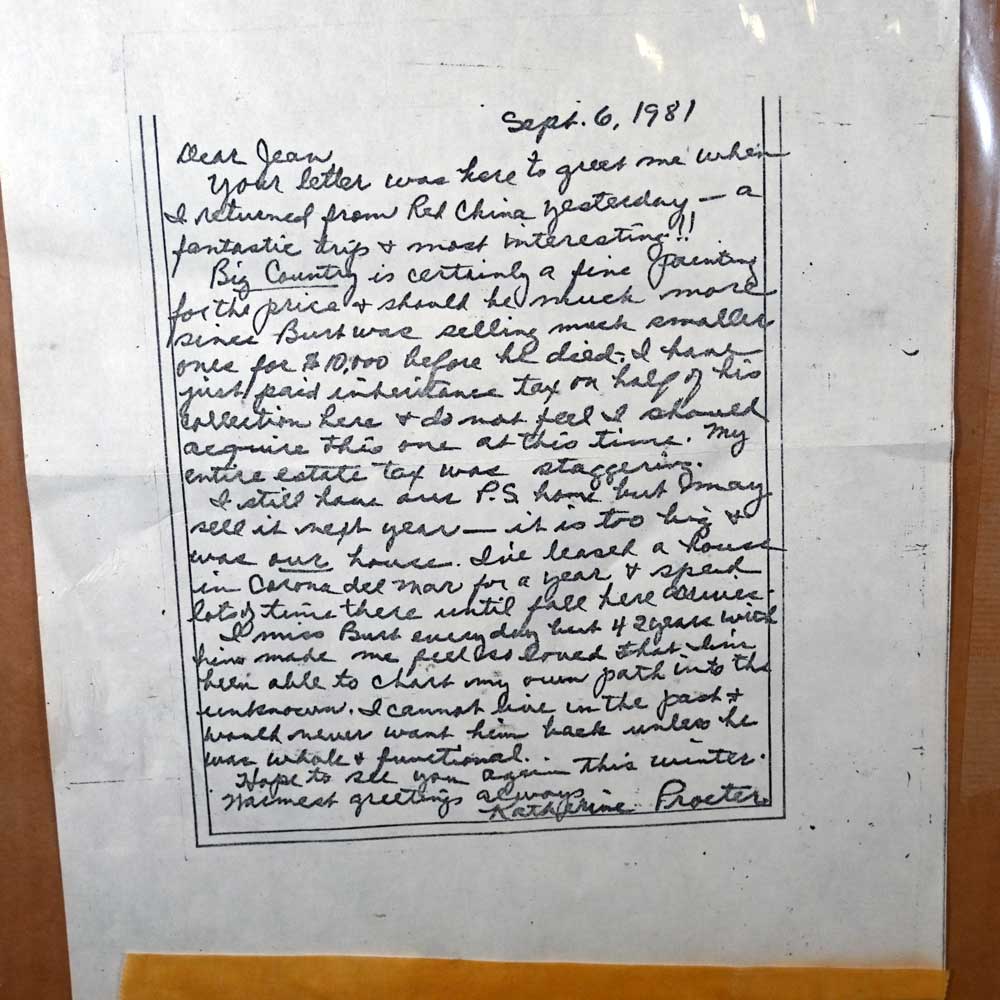 Sept. 6, 1981
Dear Jean,
Your letter was here to greet me when
I returned from Red China yesterday — a
fantastic trip & most interesting!!
Big Country is certainly a fine painting
for the price & should be much more
since Burt was selling much smaller
ones for $10,000 before he died. I have
just paid inheritance tax on half of his
collection here & do not feel I should
acquire this one at this time. My
entire estate tax was staggering.
I still have our P.S. home but I may
sell it next year — it is too big &
was our house. I've leased a house
in Corona del Mar for a year & spend
lots of time there until fall here arrives.
I miss Burt every day but 42 years with
him made me feel so loved that I'm
been able to chart my own path into the
unknown. I cannot live in the past &
would never want him back unless he
was whole & functional.
Hope to see you again this winter.
Warmest greetings always
Katherine Procter